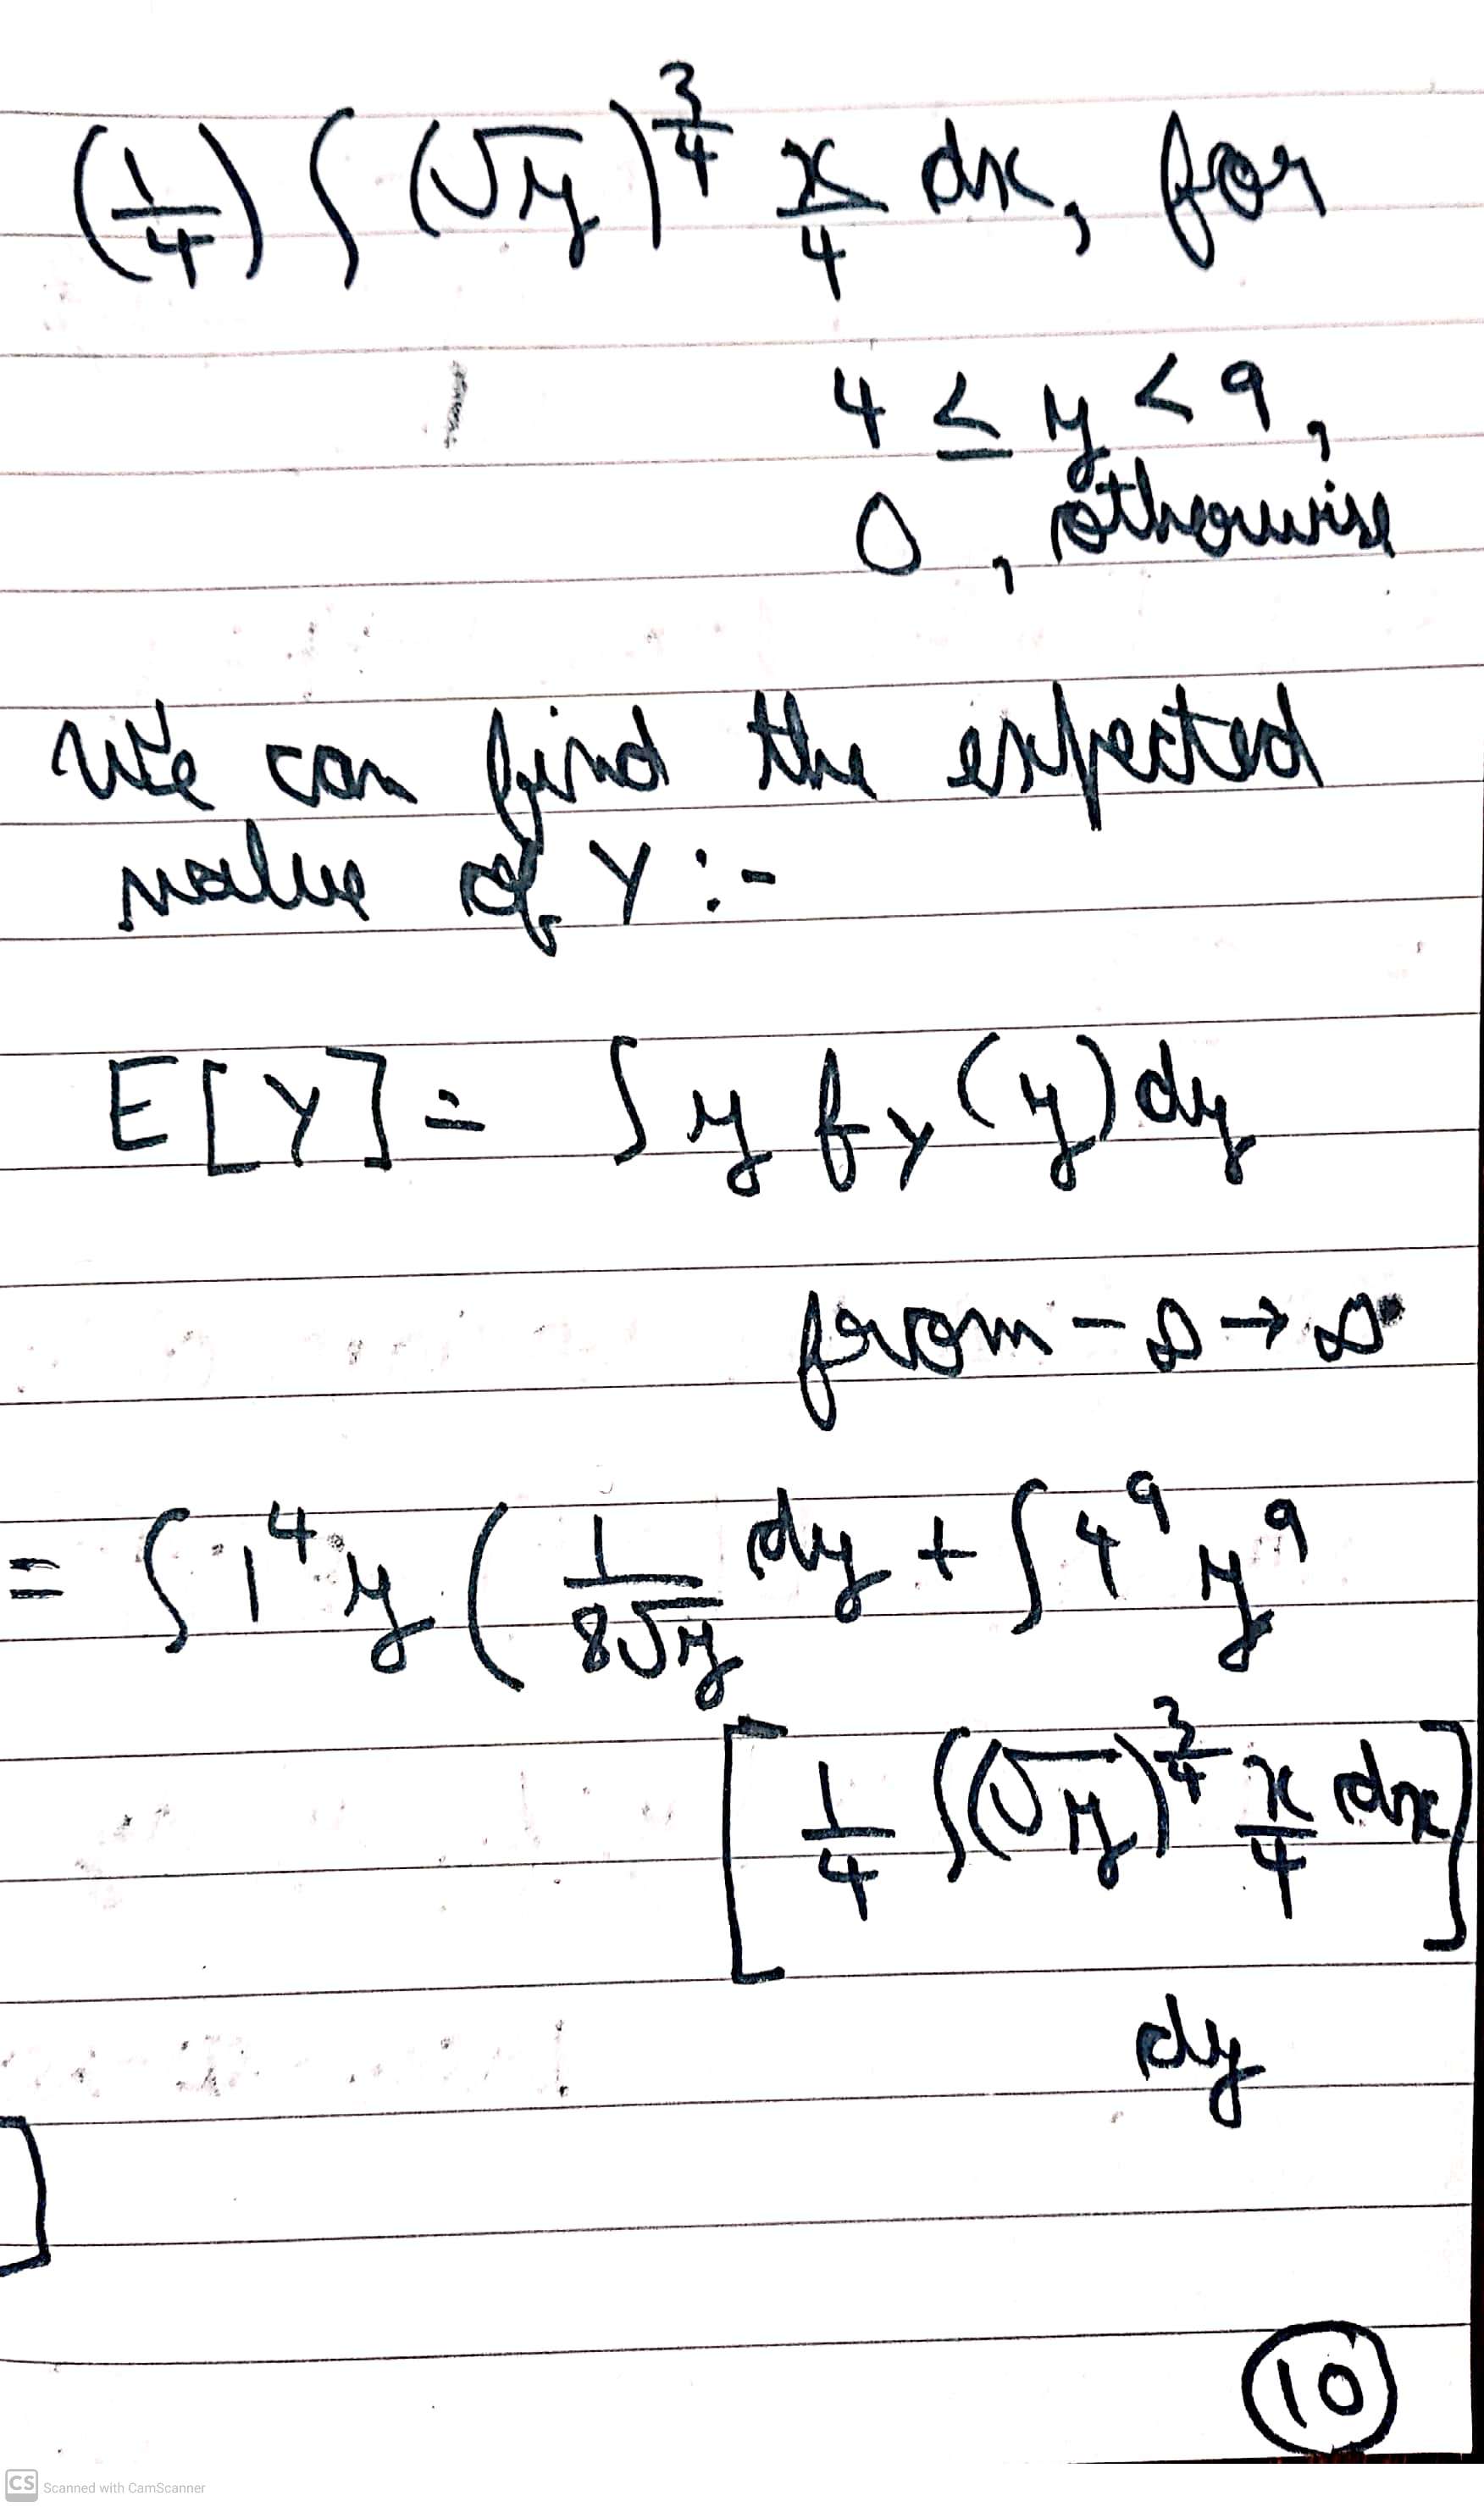 (1/4) ∫ (√y)^3/4 x/4 dx, for
4 ≤ y < 9,
0, otherwise
We can find the expected
value of Y :-
E[Y] = ∫ y fY(y) dy
from -∞ → ∞
= ∫ 1^4 y ( 1/8√y dy + ∫ 4^9 y^9
[ 1/4 ∫(√y)^3/4 x/4 dx ]
dy
]
10
CS Scanned with CamScanner